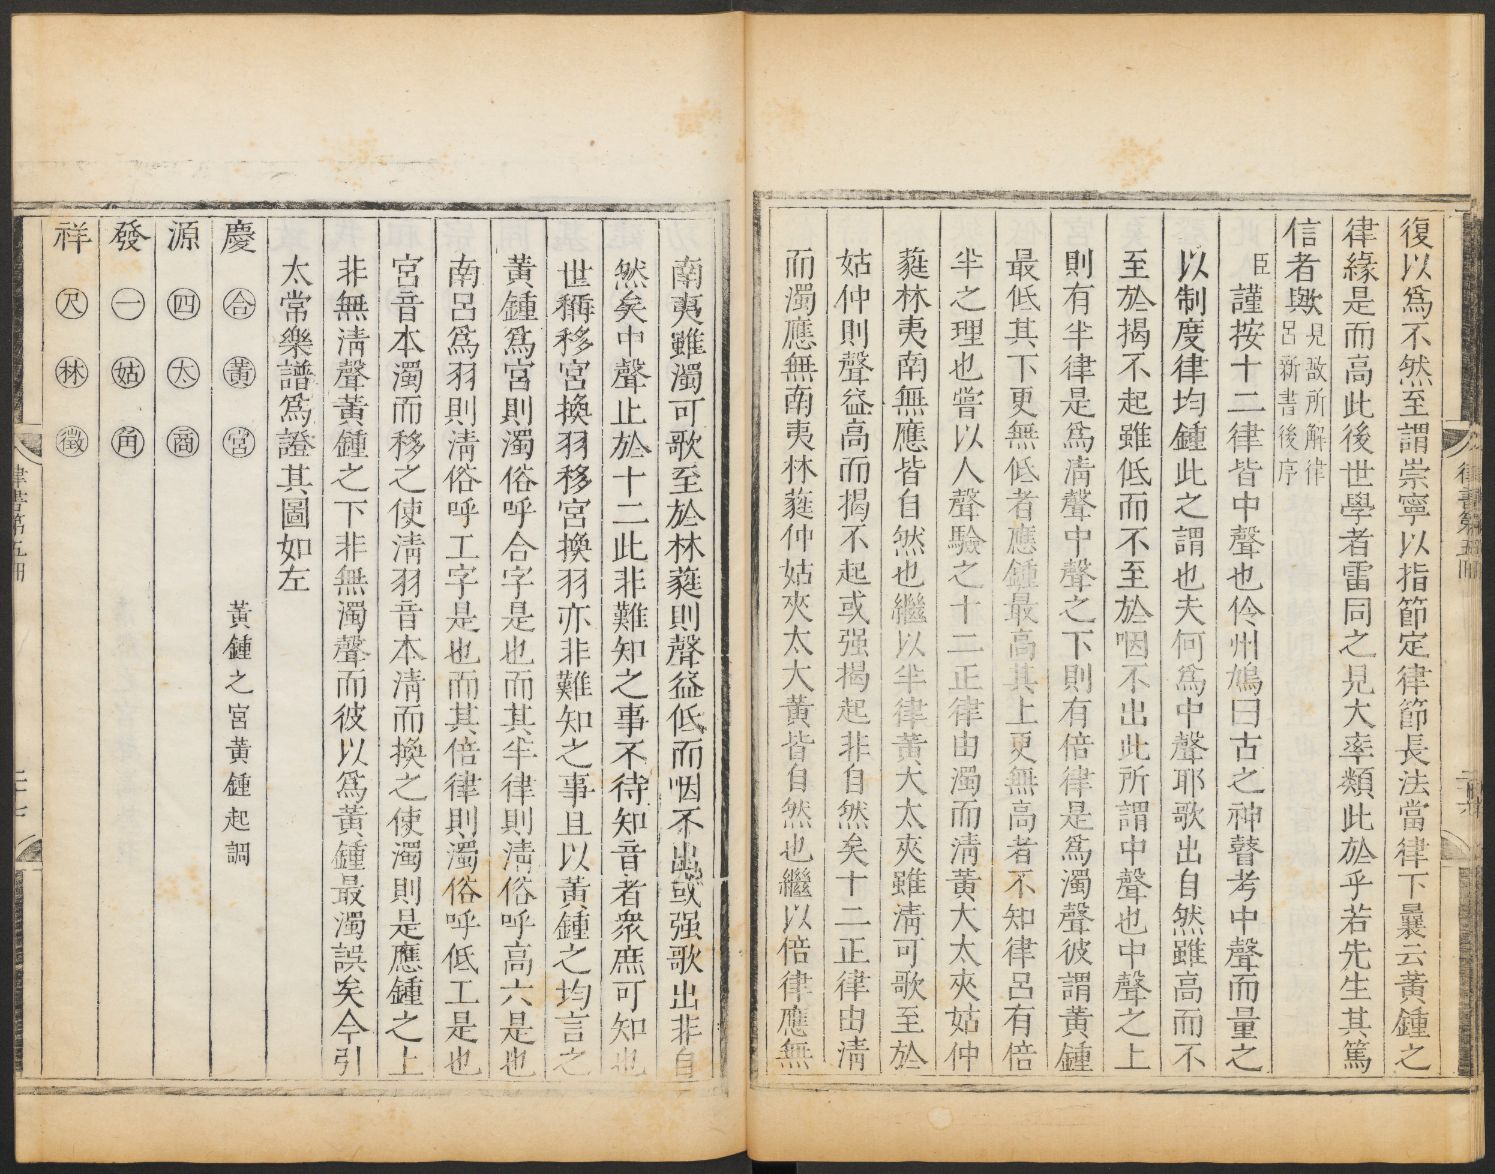 復以爲不然至謂崇寧以指節定律節長法當律下曩云黃鍾之
律緣是而高此後世學者雷同之見大率類此於乎若先生其篤
信者歟見故所解律呂新書後序
臣謹按十二律皆中聲也伶州鳩曰古之神瞽考中聲而量之
以制度律均鍾此之謂也夫何爲中聲耶歌出自然雖高而不
至於揭不起雖低而不至於咽不出此所謂中聲也中聲之上
則有半律是爲淸聲中聲之下則有倍律是爲濁聲彼謂黃鍾
最低其下更無低者應鍾最高其上更無高者不知律呂有倍
半之理也嘗以人聲驗之十二正律由濁而淸黃大太夾姑仲
蕤林夷南無應皆自然也繼以半律黃大太夾雖淸可歌至於
姑仲則聲益高而揭不起或强揭起非自然矣十二正律由淸
而濁應無南夷林蕤仲姑夾太大黃皆自然也繼以倍律應無
南夷雖濁可歌至於林蕤則聲益低而咽不出或强歌出非自
然矣中聲止於十二此非難知之事不待知音者衆庶可知也
世稱移宮換羽移宮換羽亦非難知之事且以黃鍾之均言之
黃鍾爲宮則濁俗呼合字是也而其半律則淸俗呼高六是也
南呂爲羽則淸俗呼工字是也而其倍律則濁俗呼低工是也
宮音本濁而移之使淸羽音本淸而換之使濁則是應鍾之上
非無淸聲黃鍾之下非無濁聲而彼以爲黃鍾最濁誤矣今引
太常樂譜爲證其圖如左
慶 合 黃 宮 黃鍾之宮黃鍾起調
源 四 太 商
發 一 姑 角
祥 尺 林 徵
律書第五冊